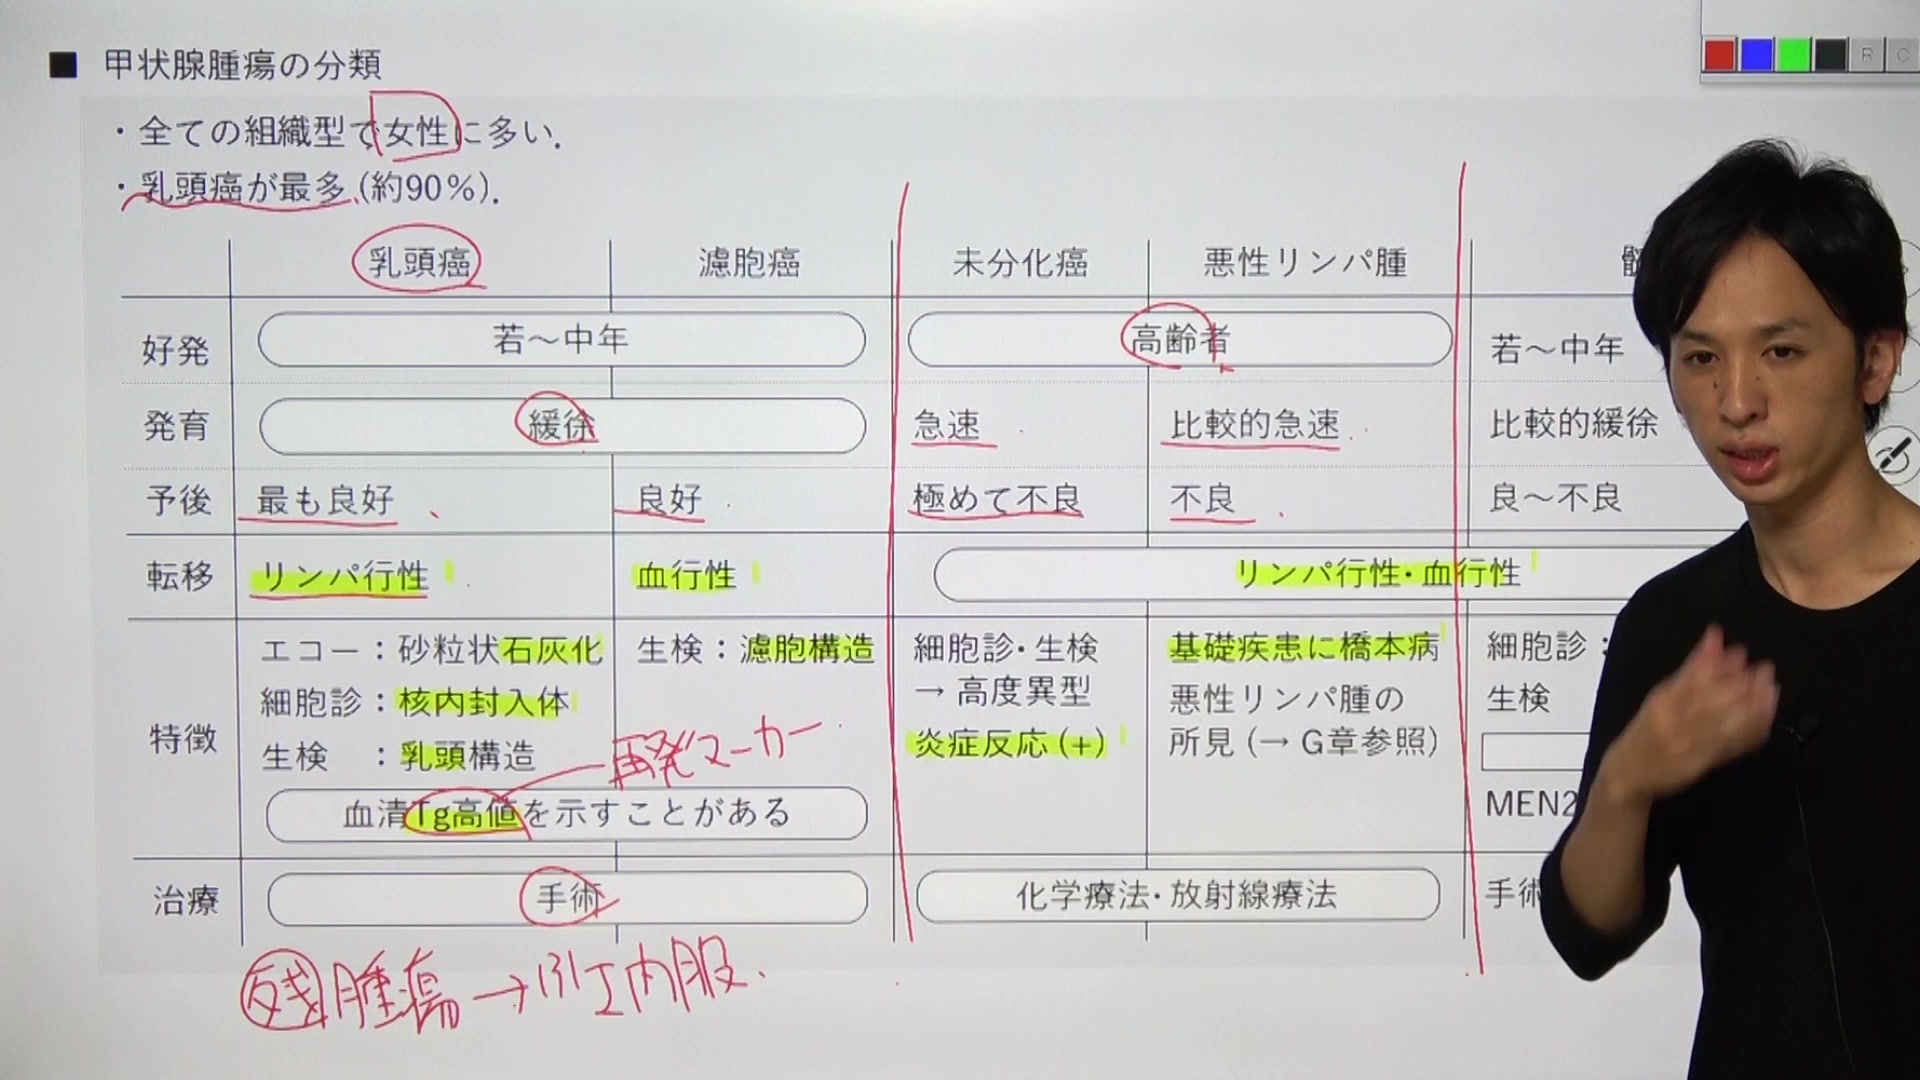 ■ 甲状腺腫瘍の分類
・全ての組織型で女性に多い．
・乳頭癌が最多（約90％）．
乳頭癌 濾胞癌 未分化癌 悪性リンパ腫 髄
好発 若～中年 高齢者 若～中年
発育 緩徐 急速 比較的急速 比較的緩徐
予後 最も良好 良好 極めて不良 不良 良～不良
転移 リンパ行性 血行性 リンパ行性・血行性
特徴
エコー：砂粒状石灰化
細胞診：核内封入体
生検　：乳頭構造
生検：濾胞構造
再発マーカー
血清Tg高値を示すことがある
細胞診・生検
→ 高度異型
炎症反応（+）
基礎疾患に橋本病
悪性リンパ腫の
所見（→ G章参照）
細胞診：
生検
MEN2
治療 手術 化学療法・放射線療法 手術
残腫瘍→131I内服．
R
C